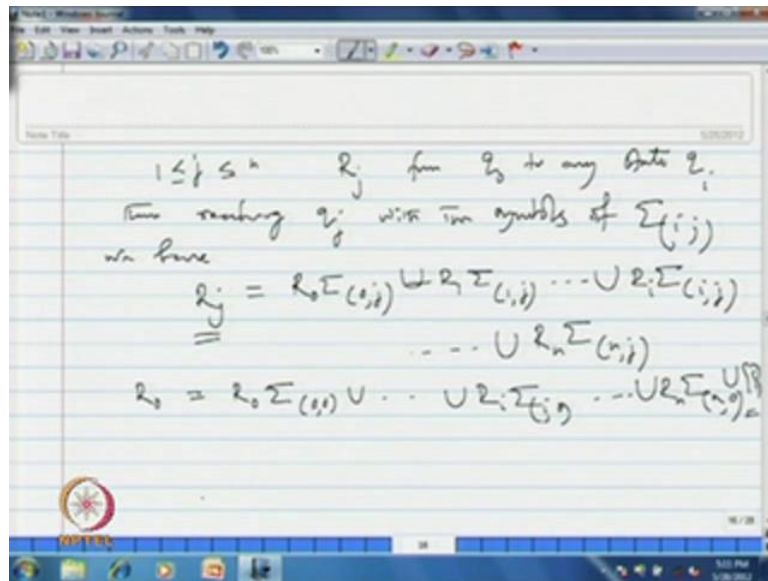 Note1 - Windows Journal
File Edit View Insert Actions Tools Help
Note Title
5/28/2012
1 ≤ j ≤ n R_j from q_0 to any state q_i
Then reaching q_j with the symbols of Σ_(i,j)
we have
R_j = R_0 Σ_(0,j) ∪ R_1 Σ_(1,j) ... ∪ R_i Σ_(i,j)
.... ∪ R_n Σ_(n,j)
R_0 = R_0 Σ_(0,0) ∪ .. ∪ R_i Σ_(i,0) ... ∪ R_n Σ_(n,0) ∪
NPTEL